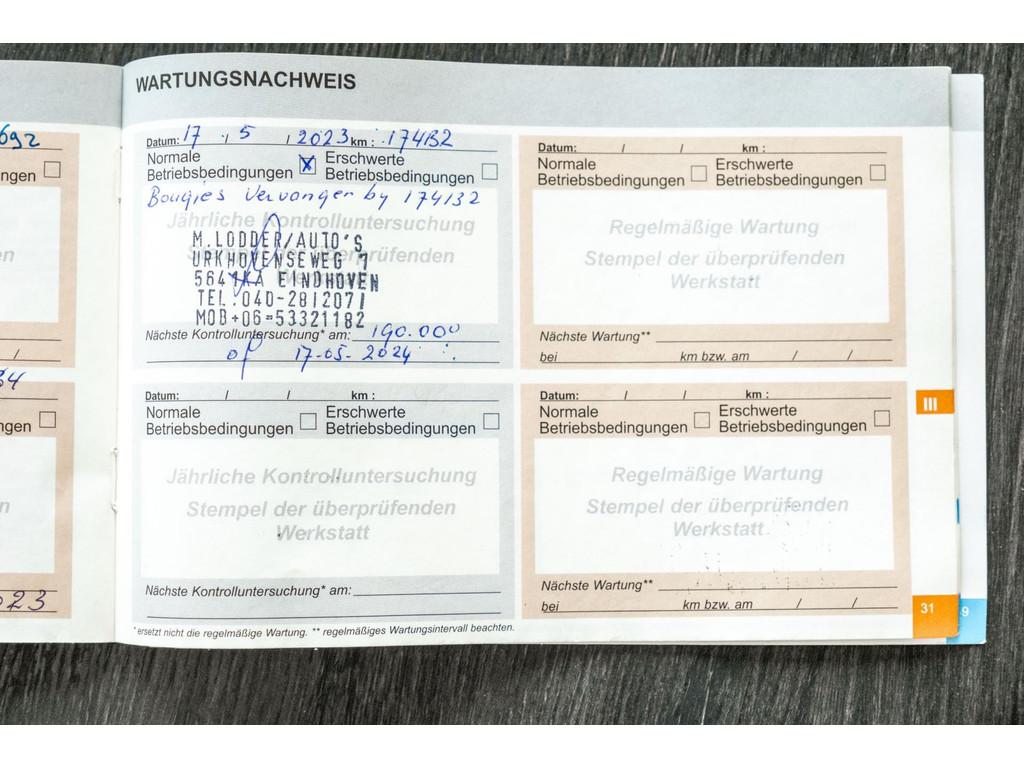 692
ngen
/
34
ngen
n
023
WARTUNGSNACHWEIS
Datum: 17 / 5 / 2023 km : 174132
Normale Betriebsbedingungen X Erschwerte Betriebsbedingungen
Bougies Vervangen by 174132
Jährliche Kontrolluntersuchung
Stempel der überprüfenden
Werkstatt
M.LODDER/AUTO'S
URKHOVENSEWEG 1
5641KA EINDHOVEN
TEL.040-2812071
MOB+06=53321182
Nächste Kontrolluntersuchung* am: 190.000
of 17-05-2024
Datum: / / km :
Normale Betriebsbedingungen Erschwerte Betriebsbedingungen
Regelmäßige Wartung
Stempel der überprüfenden
Werkstatt
Nächste Wartung**
bei km bzw. am / /
Datum: / / km :
Normale Betriebsbedingungen Erschwerte Betriebsbedingungen
Jährliche Kontrolluntersuchung
Stempel der überprüfenden
Werkstatt
Nächste Kontrolluntersuchung* am:
Datum: / / km :
Normale Betriebsbedingungen Erschwerte Betriebsbedingungen
Regelmäßige Wartung
Stempel der überprüfenden
Werkstatt
Nächste Wartung**
bei km bzw. am / /
* ersetzt nicht die regelmäßige Wartung. ** regelmäßiges Wartungsintervall beachten.
III
31
9